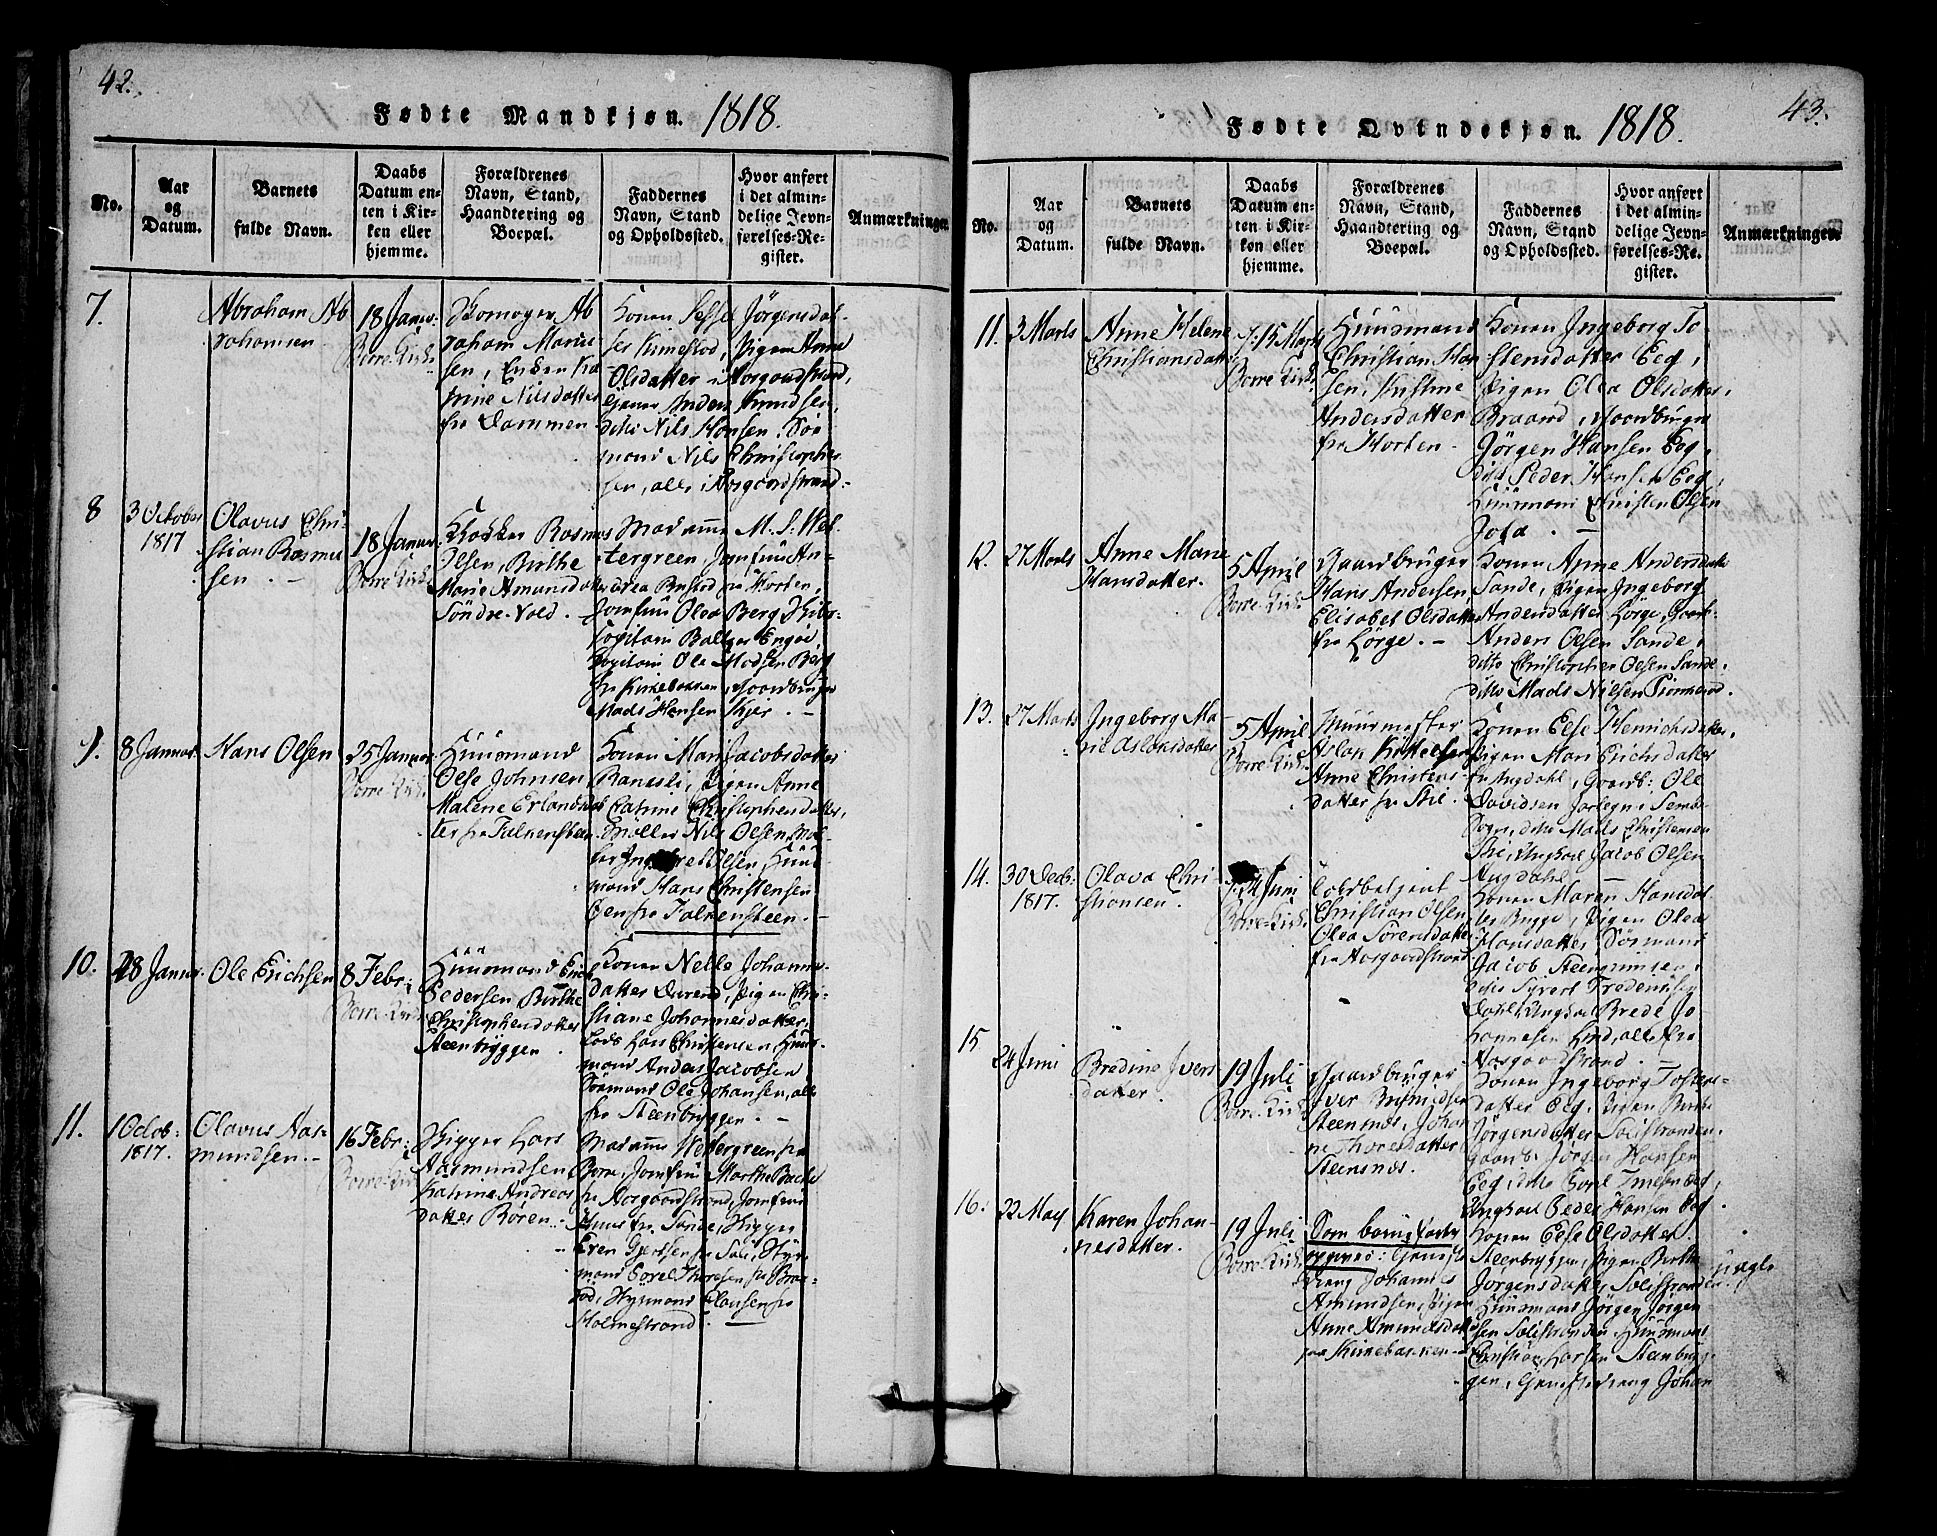 42.
Fødte Mandkjøn. 1818.
No.
Aar
og
Datum.
Barnets
fulde Navn.
Daabs
Datum en-
ten i Kir-
ken eller
hjemme.
Forældrenes
Navn, Stand,
Haandtering og
Boepæl.
Faddernes
Navn, Stand
og Opholdssted.
Hvor anført
i det almin-
delige Jevn-
førelses-Re-
gister.
Anmærkninger.
7.
Abraham Ab
rahamsen
18 Januar
Borre Kirke
Ab
raham Mariu
sen,
trine Nilsdatter
fra Dammen
Konen Jørgensdat-
Pigen Anne
Olsdatter i Aasgaardstrand,
Anders Amundsen,
ditto Nils Hansen, Søe
mand Nils Christopher
sen, alle i Aasgaardstrand.
8
3 October
1817
Olavus Chri-
stian Rasmu
sen.
18 Januar
Borre Kirke
Klokker Rasmus
Olsen, Birthe
Marie Amundsdatter
Søndre Vold.
Madame M. S. Wes-
tergreen, Jomfrue An-
drea fra Horten,
Jomfrue Olea Berg
Capitain Baltzer
Capitain Ole Madsen Berg
fra Kirkebakken, Gaardbruger
Mads Hansen Kjær.
9.
8 Januar.
Hans Olsen
25 Januar
Borre Kirke
Huusmand
Ole Johnsen
Malene Erlandsdat
ter fra Falkensteen
Konen Mari Jacobsdatter
Pigen Anne
Catrine Christophersdatter,
Møller Nils Olsen,
Huus
mand Hans Christensen
fra Falkensteen.
10.
28 Januar.
Ole Erichsen
8 Febr.
Borre Kirke
Huusmand Erich
Pedersen Birthe
Christophersdatter
Steenbryggen.
Konen Nelle Johannes-
datter Pigen Chri-
stiane Johannesdatter,
Lods Lars Christensen, Huus-
mand Anders Jacobsen
Søemand Ole Johansen, alle
fra Steenbryggen.
11.
1 Octob:
1817.
Olavus Aas-
mundsen.
16 Febr.
Borre Kirke
Skipper Lars
Aasmundsen
Katrine Andreas
datter Børen.
Madame Westergreen fra
Borre, Jomfrue Marthe Bache
fra Aasgaardstrand, Jomfrue
fra Sande, Skipper
Even Gjertsen fra Styr
mand Thoresen fra
Styrmand Clausen fra
Holmestrand.
43.
Fødte Qvindekjøn. 1818.
No.
Aar
og
Datum.
Barnets
fulde Navn.
Daabs
Datum en-
ten i Kir-
ken eller
hjemme.
Forældrenes
Navn, Stand,
Haandtering og
Boepæl.
Faddernes
Navn, Stand
og Opholdssted.
Hvor anført
i det almin-
delige Jevn-
førelses-Re-
gister.
Anmærkninger.
11.
3 Marts
Anne Helene
Christiansdatter
15 Marts
Borre Kirke
Huusmand
Christian Han
sen, Kirstine
Andersdatter
fra Horten
Konen Ingeborg To-
stensdatter Eeg,
Pigen Olea Olsdatter,
Braard, Gaardbruger
Jørgen Hansen Eeg,
ditto Peder Hansen Eeg,
Huusmand Christen Olsen
12.
27 Marts
Anne Marie
Hansdatter.
5 April
Borre Kirke
Gaardbruger
Hans Andersen,
Elisabet Olsdatter
fra Lørge.
Konen Anne Andersdatter
Sande, Pigen Ingeborg
Andersdatter Lørge, Gaardb.
Anders Olsen Sande,
ditto Christopher Olsen Sande,
ditto Mads Nilsen
13.
27 Marts
Ingeborg Ma-
rie Aslaksdatter
5 April
Borre Kirke
Muurmester
Aslak Kittelsen
Anne Christens-
datter fra Stie.
Konen Else Henrichsdatter,
Pigen Mari Erichsdatter
fra Augdahl, Gaardb: Ole
Davidsen Semb
Sogn, ditto Mads Christensen
Stie, Ungkarl Jacob Olsen
Augdahl.
14.
30 Decb:
1817.
Olava Chri-
stiansen.
24 Juni
Borre Kirke
Toldbetjent
Christian Olsen
Olea Sørensdatter
fra Aasgaardstrand
Konen Maren Hansdat-
ter Bygge, Pigen Olea
Hansdatter Søemand
Jacob
ditto Sivert
Dahl, Ungkarl Brede Jo
hannesen Lind, alle fra
Aasgaardstrand.
15
24 Juni
Bredine Ivers
datter.
19 Juli
Borre Kirke
Gaardbruger
Iver
Steensnæs, Johan
ne Thoresdatter
Steensnæs.
Konen Ingeborg Tostens-
datter Eeg, Pigen Birthe
Jørgensdatter Solistranden,
Gaardb. Jørgen Hansen
Eeg, ditto
Ungkarl Peder Hansen Eeg
16.
22 May
Karen Johan-
nesdatter.
19 Juli
Borre Kirke
Som barnefader
opgives:
dreng Johannes
Amundsen, Pigen
Anne Amundsdatter
paa Kirkebakken
Konen Else Olsdatter.
Steenbryggen, Pigen Birthe
Jørgensdatter Solistranden.
Huusmand Jørgen Jørgen
sen Solistranden, Huusmand
Christian Larsen Steenbryg-
gen, dreng Johan
Uægte